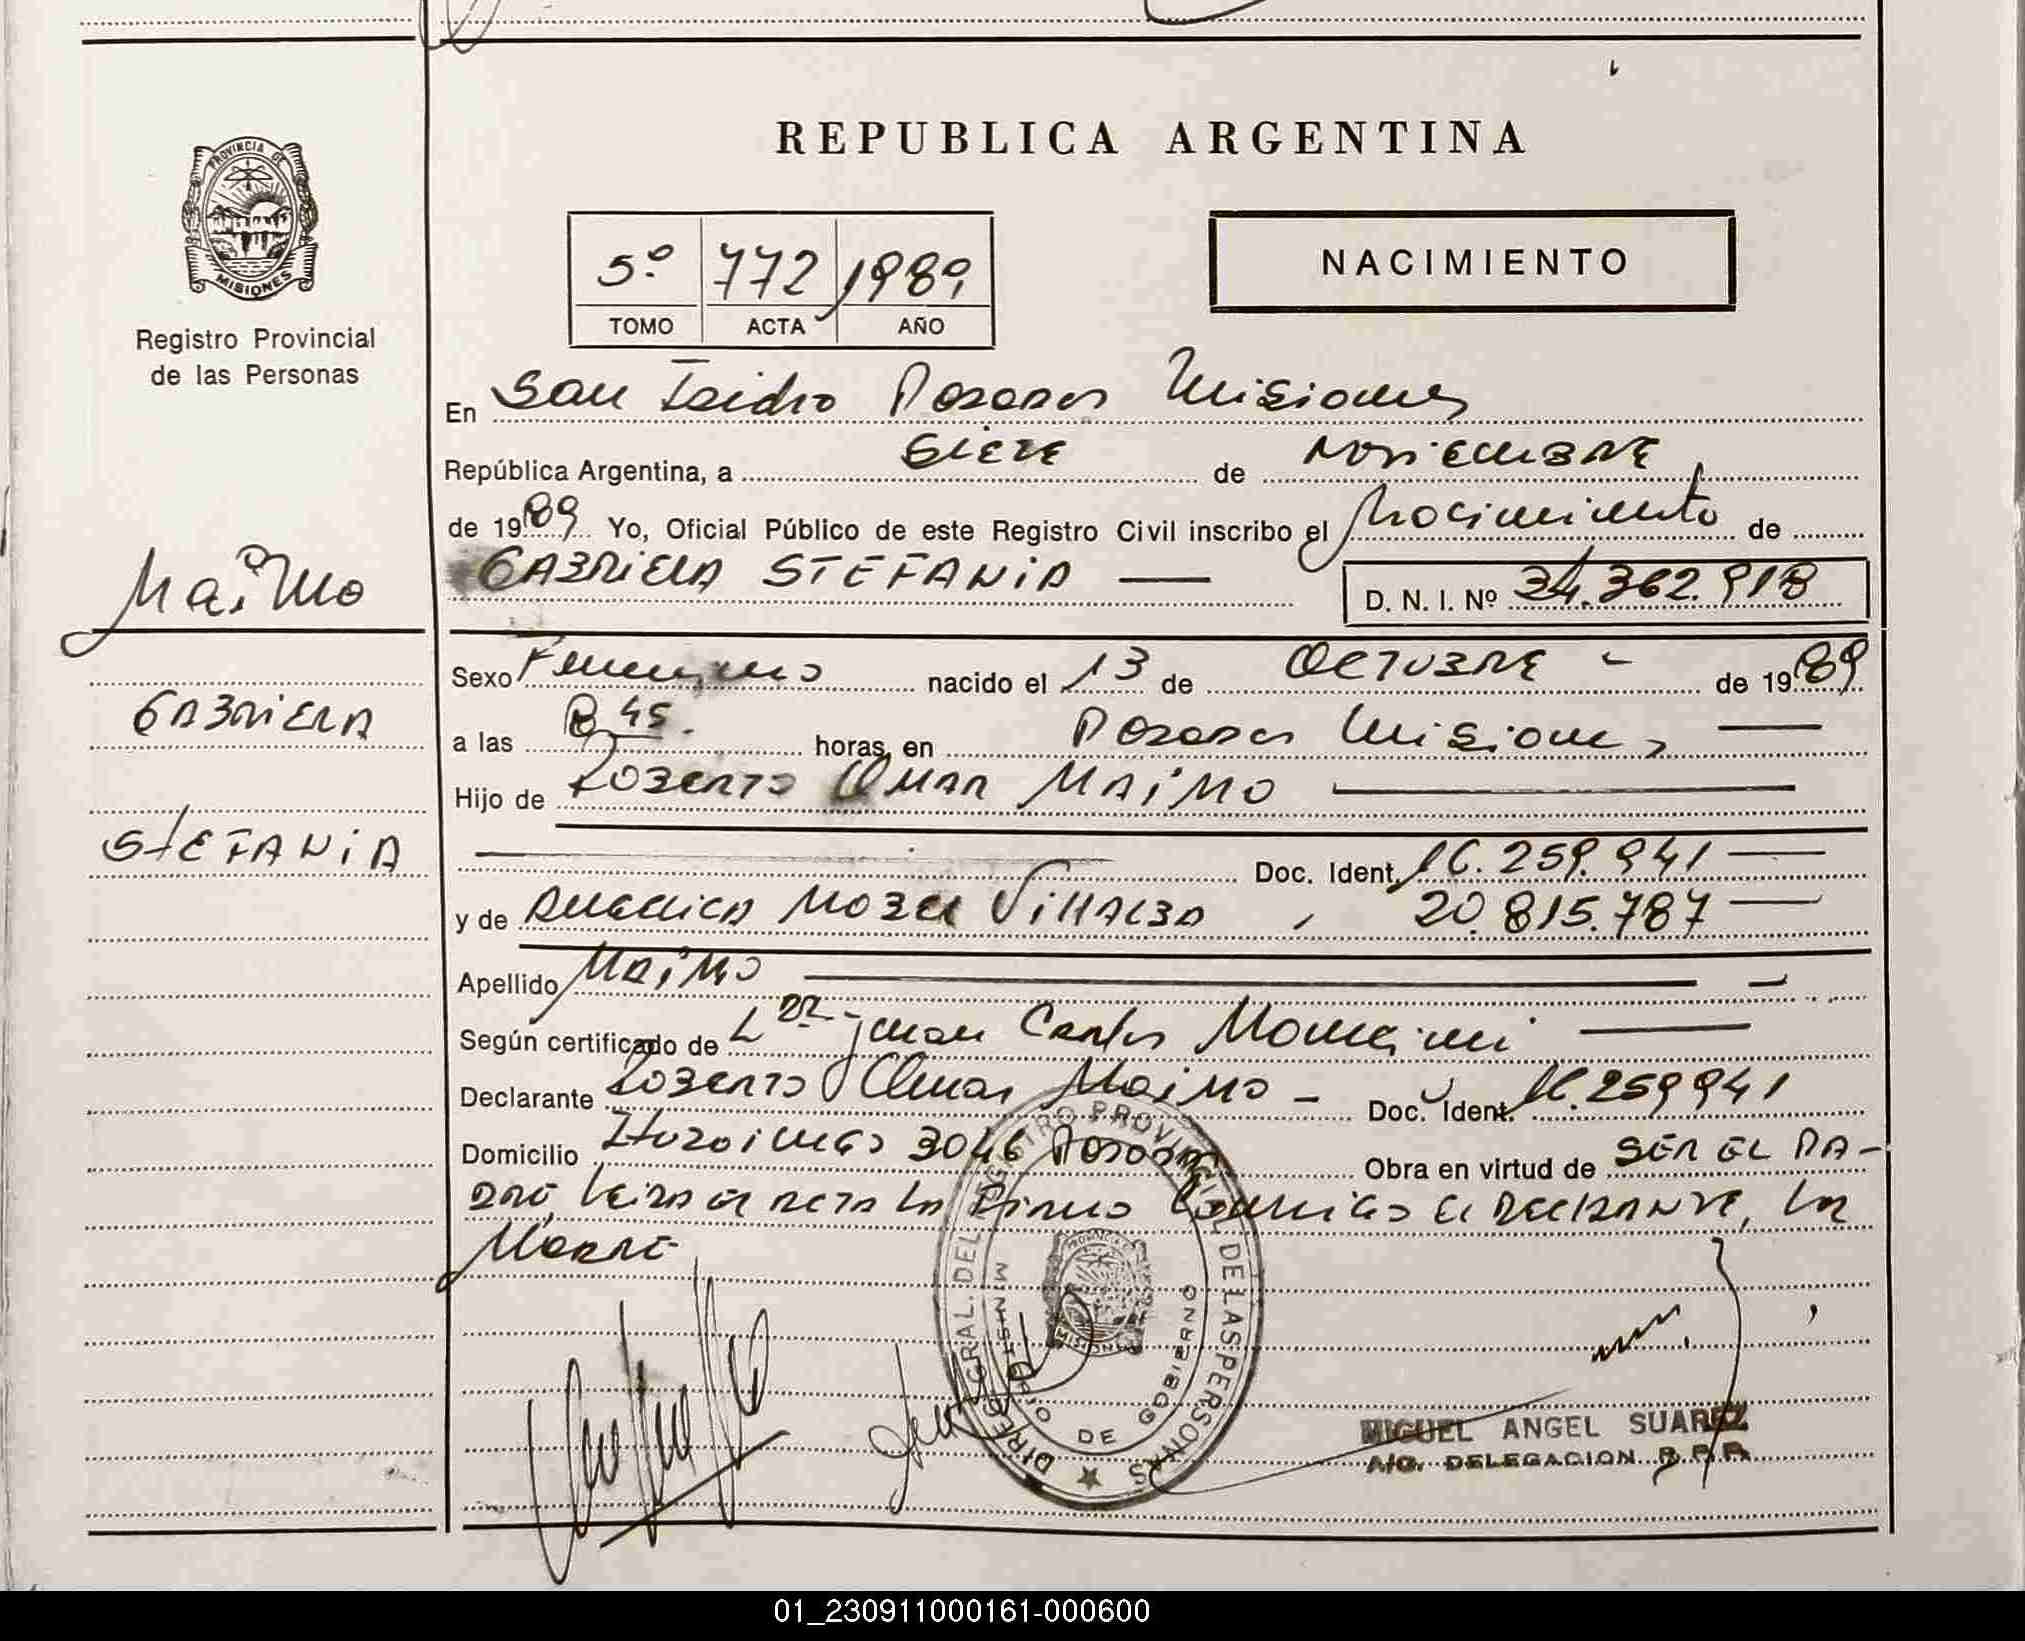 PROVINCIA DE
MISIONES
Registro Provincial
de las Personas
Maimo
GABRIELA
STEFANIA
REPUBLICA ARGENTINA
5º 772 1989
TOMO ACTA AÑO
NACIMIENTO
En San Isidro Posadas Misiones
República Argentina, a SIETE de NOVIEMBRE
de 1989 Yo, Oficial Público de este Registro Civil inscribo el Nacimiento de
GABRIELA STEFANIA — D. N. I. Nº 34.362.918
Sexo Femenino nacido el 13 de OCTUBRE - de 1989
a las 8 45. horas, en Posadas Misiones —
Hijo de ROBERTO OMAR MAIMO —
— Doc. Ident. 16.259.941 —
y de ANGELICA MABEL VILLALBA , 20.815.787 —
Apellido MAIMO —
Según certificado de Juan Carlos —
Declarante ROBERTO Omar MAIMO - Doc. Ident. 16.259941
Domicilio Ituzaingo 3046 Posadas Obra en virtud de SER EL PA-
DRE, Leida el acta la Firma Conmigo el DECLARANTE, la
Madre
DIREC. GRAL. DEL REGISTRO PROVINCIAL DE LAS PERSONAS
MINISTERIO DE GOBIERNO
PROVINCIA DE
MISIONES
MIGUEL ANGEL SUAREZ
A/C. DELEGACION R.P.P.
01_230911000161-000600